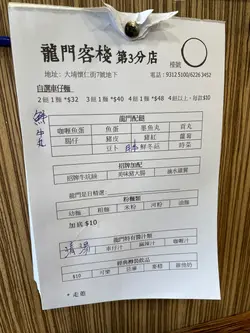 龍門客棧 第3分店
檯號
地址: 大埔懷仁街7號地下
電話: 9312 5100/6226 3452
自選車仔麵
2餸1麵 *$32 3餸1麵 *$40 4餸1麵 *$48 4餸以上,每款$10
鮮牛丸
龍門配餸
咖喱魚蛋 魚蛋 墨魚丸 貢丸
腸仔 豬皮 豬紅 蘿蔔
豆卜 鮮冬菇 時菜
招牌加配
招牌牛坑腩 美味豬大腸 滷水雞翼
龍門是日精選
粉麵類
幼麵 粗麵 米粉 河粉 油麵
加底 $10
清湯
龍門特有醬汁類
車仔汁 麻辣汁 咖喱汁
$10 可樂 忌廉 維他奶
*走葱